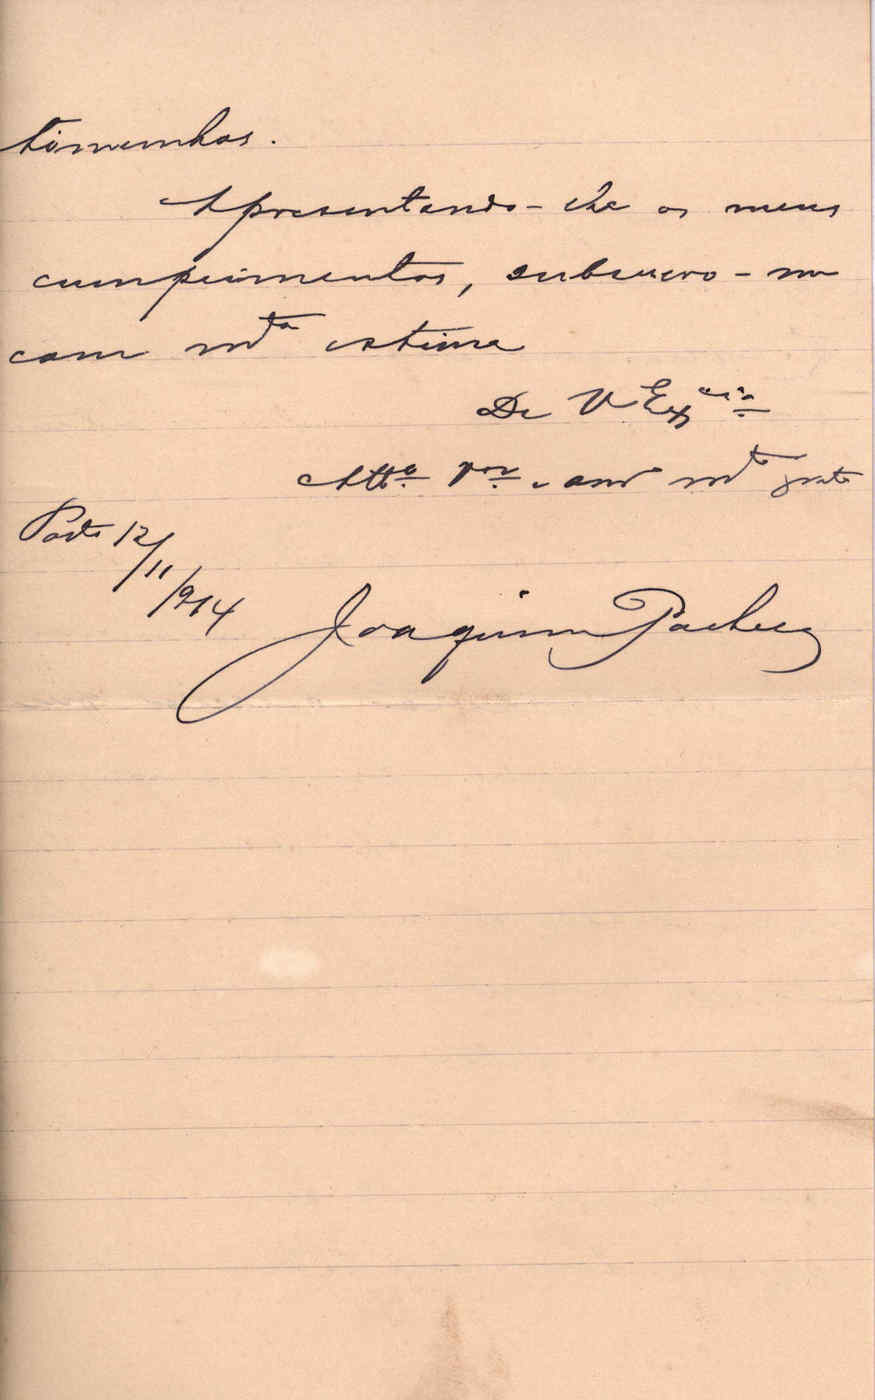 Apresentando-lhe os meus
cumprimentos, subscrevo-me
com mta estima
De V Exa
Atto Vor e amo mto grato
Porto 12/11/914
Joaquim Pacheco